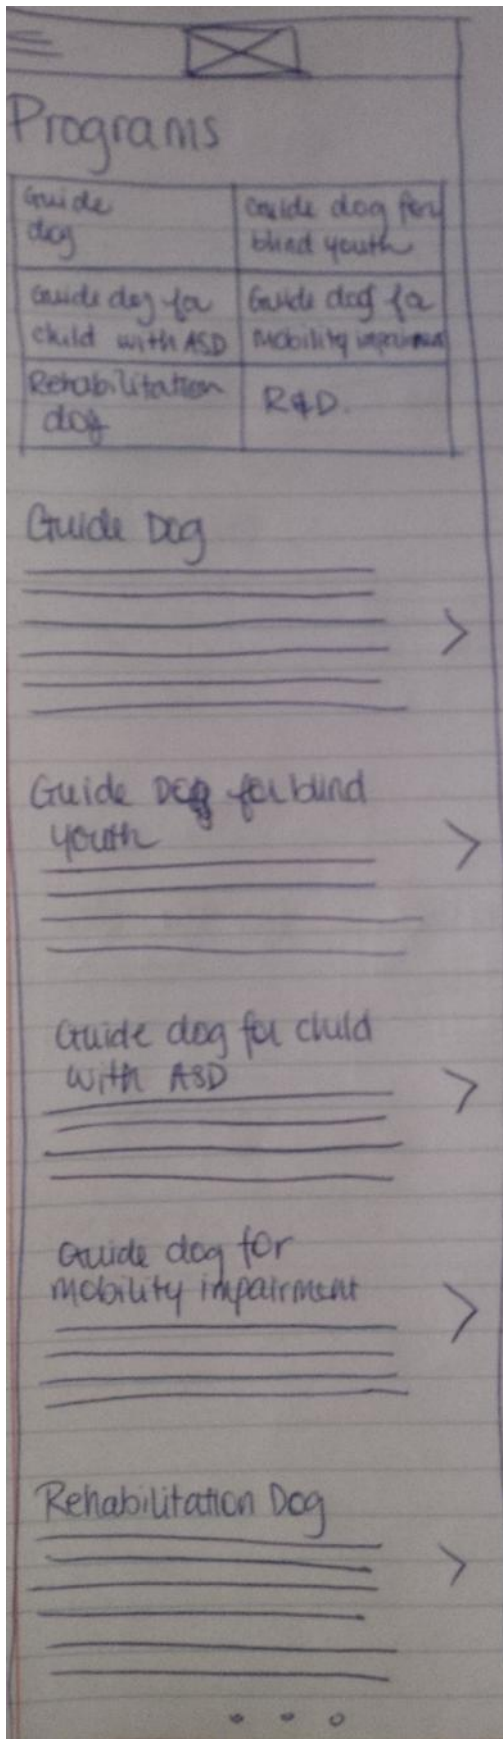 Programs
Guide
dog
Guide dog for
blind youth
Guide dog for
child with ASD
Guide dog for
Mobility impairment
Rehabilitation
dog
R&D.
Guide Dog
Guide Dog for blind
youth
Guide dog for child
with ASD
Guide dog for
mobility impairment
Rehabilitation Dog